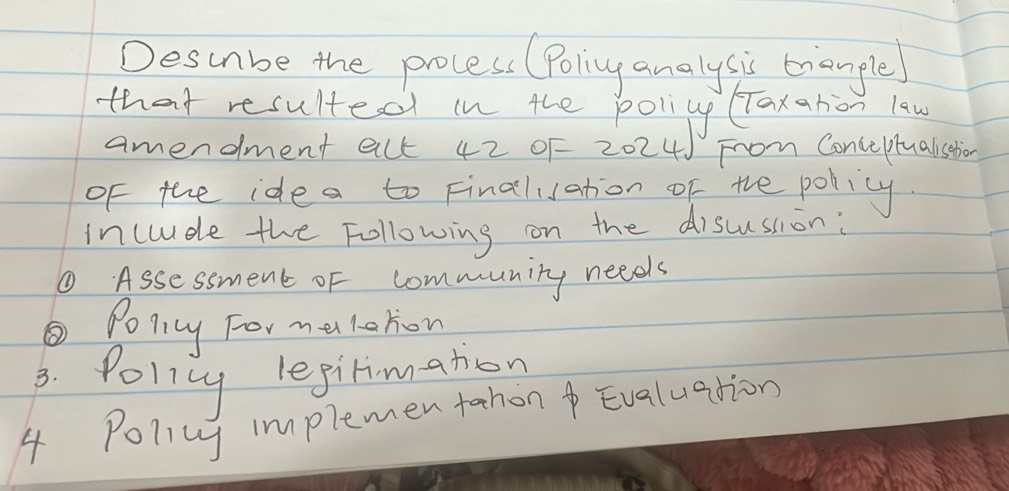 Describe the process (Policy analysis triangle)
that resulted in the policy (Taxation law
amendment act 42 OF 2024) From Conceptualisation
OF the idea to Finalisation OF the policy.
Include the Following on the discussion:
① Assessment OF community needs
② Policy Formulation
3. Policy legitimation
4 Policy implementation & Evaluation